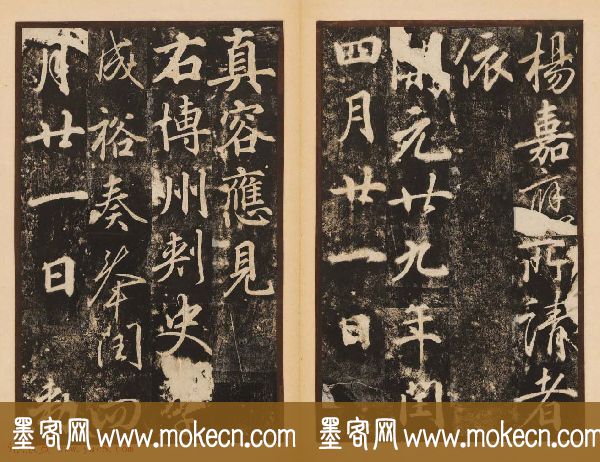 楊嘉府所請者
依
開元廿九年閏
四月廿一日
真容應見
右博州刺史李
成裕奏奉閏四
月廿一日
墨客网 www.mokecn.com
墨客网 www.mokecn.com